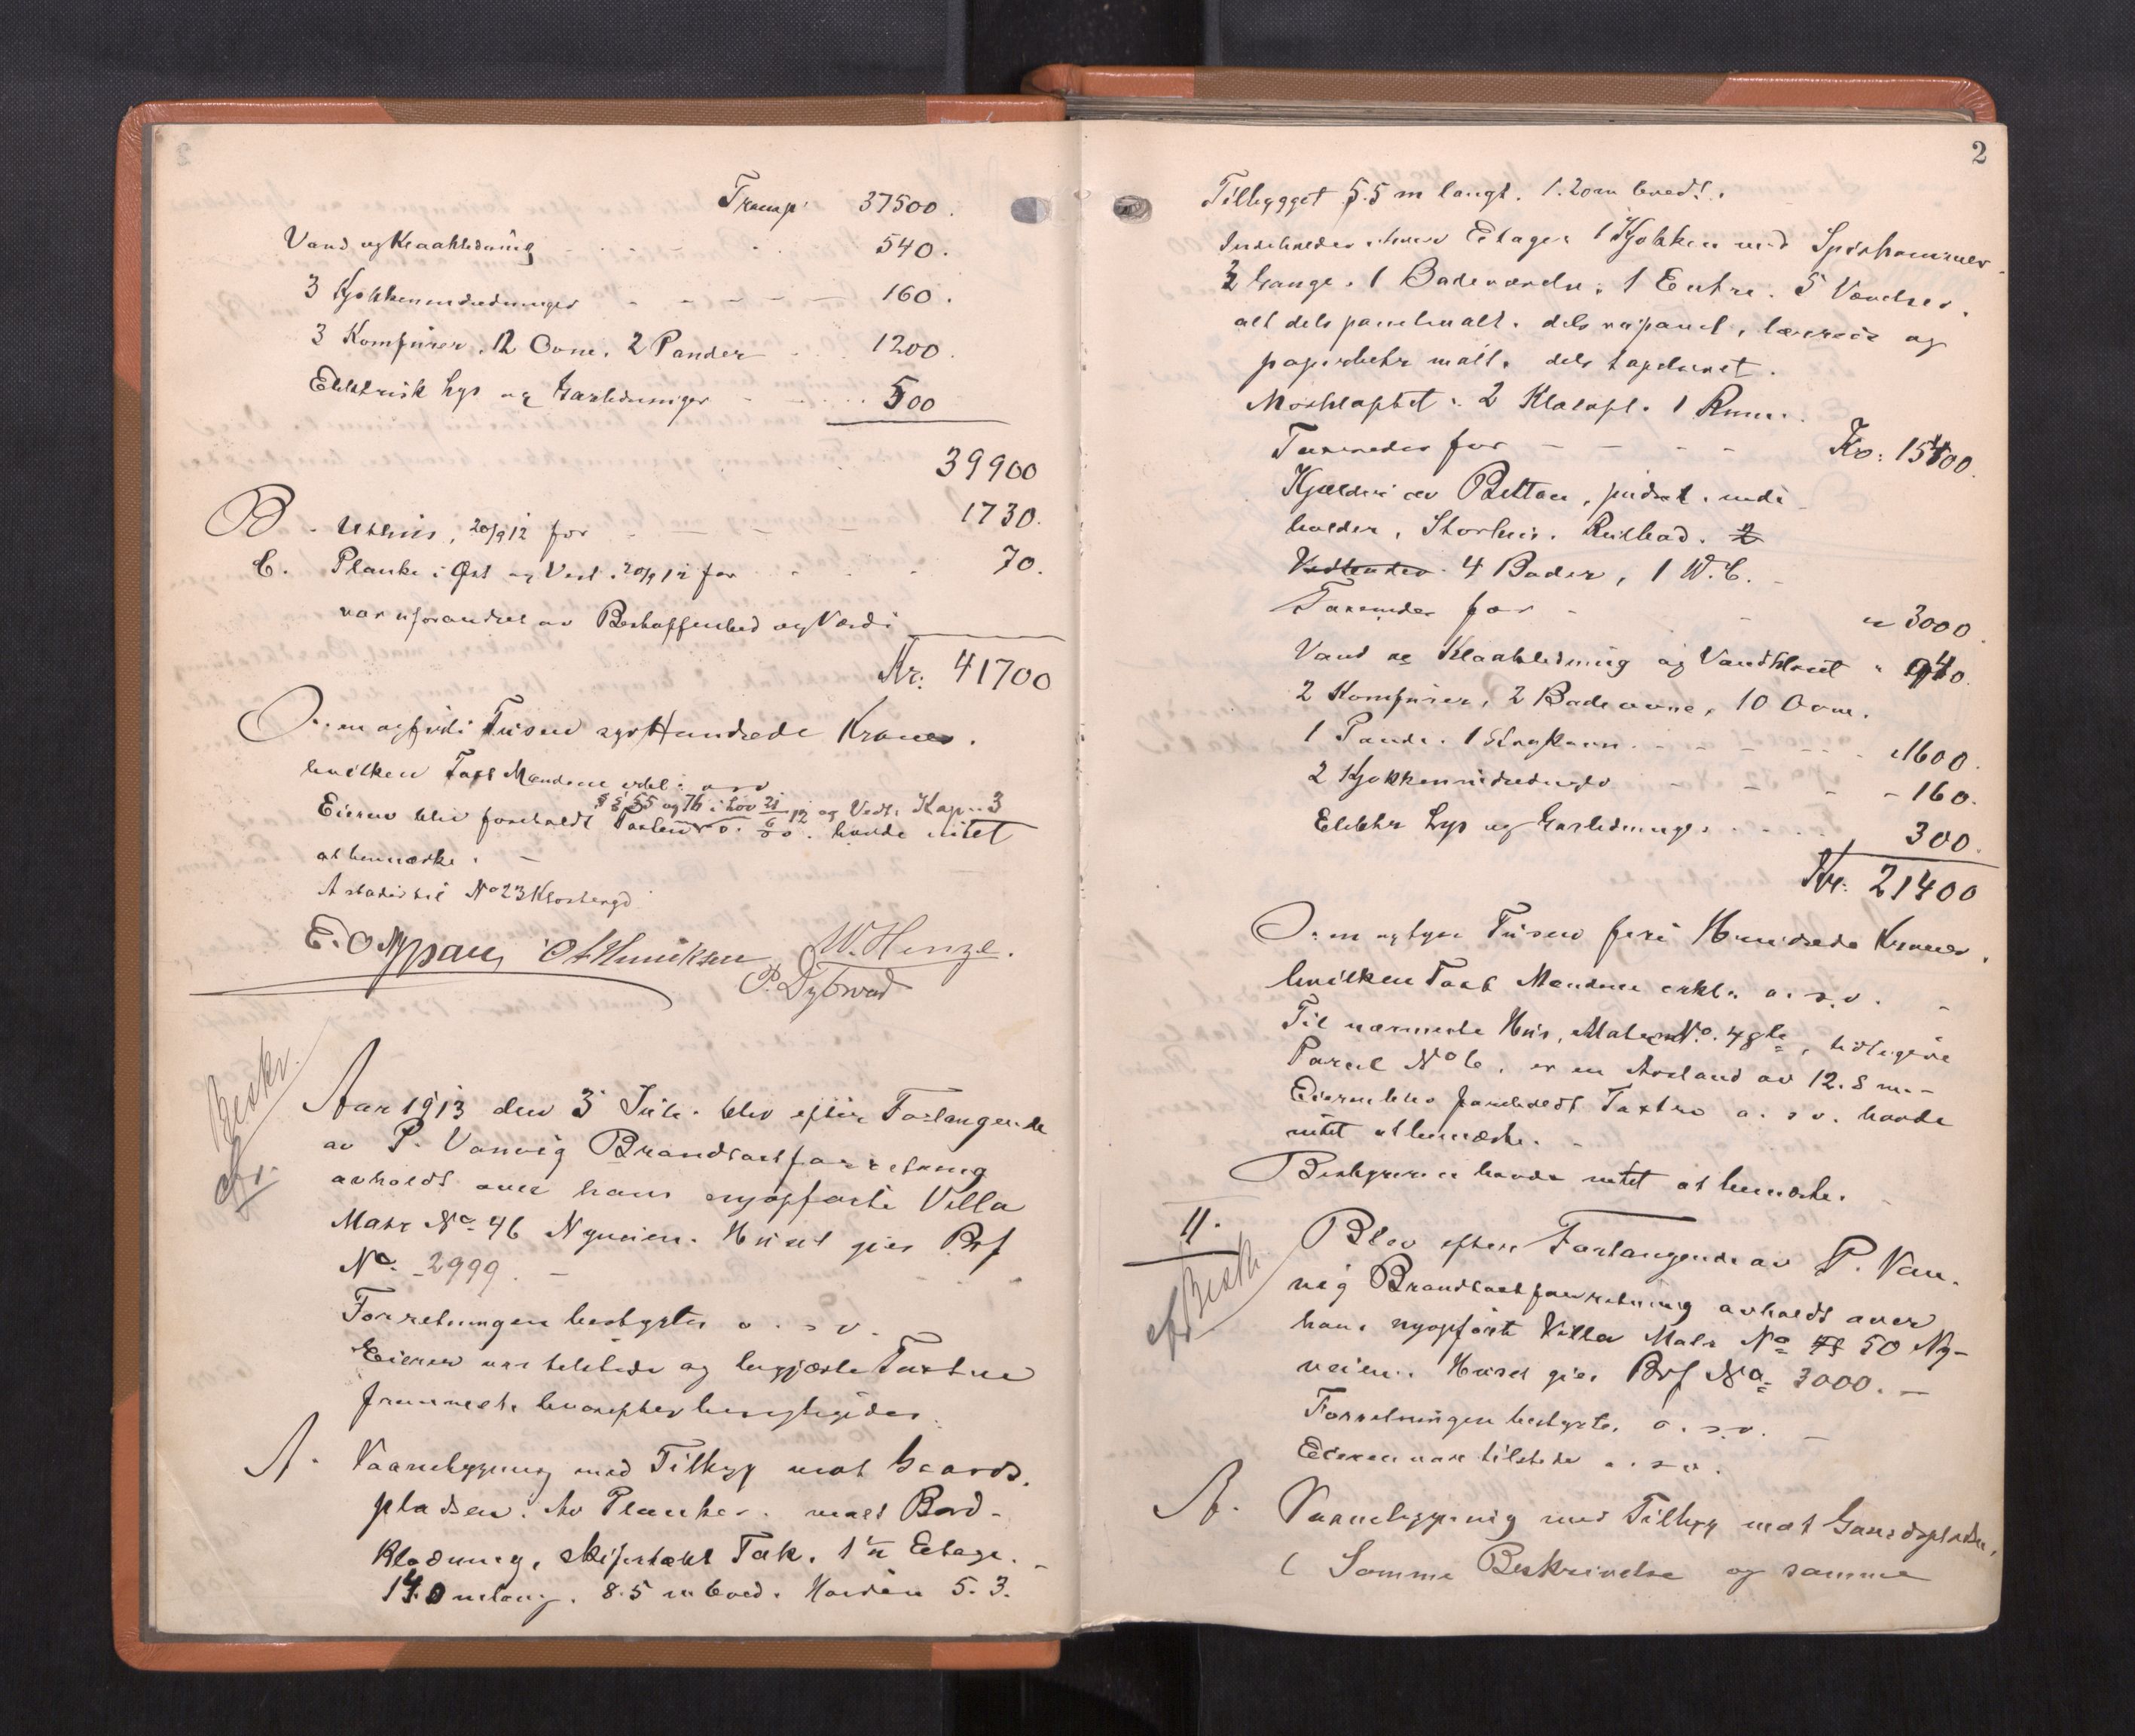 Transp. 37500.
Vand og Kloakledning - - - 540.
3 Kjøkkenindredninger - - - - 160.
3 Komfurer, 12 Ovne, 2 Pander - - 1200.
Elektrisk Lys og Gasledninger - - - 500
39900
B. Uthus, 20/9 12 for - - - 1730.
C. Planke i Øst og Vest. 20/9 12 for - - - 70.
var uforandret av Beskaffenhed og Værdi
Kr: 41700
En og firti Tusen syv Hundrede Kroner.
hvilken Taxt Mændene erkl: osv
§§ 55 og 76 i Lov 21/6 12 og Vedt. Kap. 3
Eieren blev foreholdt Taxten havde intet
at bemærke. -
Avstand til No 23 Klostergd
E. O. Nypan O Henriksen W. Hinze.
P. Dybwad
Beskr.
afs.
Aar 1913 den 3 Juli blev efter Forlangende
av P. Vanvig Brandtaxtforretning
avholdt over hans nyopførte Villa
Matr No 46 Nyveien. Huset gies Brf
No 2999. -
Forretningen bestyrtes o. s. v.
Eieren var tilstede og begjærte Taxten
fremmet, hvorefter besigtigedes.
A. Vaanebygning med Tilbyg mot Gaards-
pladsen. Av Planker. malt Bord-
klædning, skifertækt Tak. 1 1/2 Etage. -
14.0 m lang. 8.5 m bred. Høiden 5.3.
2
Tilbygget 5.5 m langt. 1.20 m bredt.
Indeholder i hver Etage: 1 Kjøkken med Spiskammer
2 Gange. 1 Badeværelse, 1 Entre. 5 Værelser.
alt dels panelmalt. dels papanel, lærred og
papirbetr malt. dels tapetseret.
Mørkloftet: 2 Klæsopl. 1 Rum.
Taxeredes for - - - - Kr: 15400.
Kjælder av Betton, pudset. inde-
holder, Storhus. Rulbod.
Vedboder. 4 Boder, 1 W.C. -
Taxeredes for - - " 3000.
Vand og Kloakledning og Vandklosset " 940.
2 Komfurer, 2 Badeovne, 10 Ovne.
1 Pande. 1 - - - - - " 1600.
2 Kjøkkenindredninger - - - - 160.
Elektr Lys og Gasledninger - - - 300.
Kr: 21400
En og tyve Tusen fire Hundrede Kroner.
hvilken Taxt Mændene erkl: o. s. v. -
Til nærmeste Hus, Matr No. 48, tidligere
Parcel No 6, er en Avstand av 12.8 m. -
Eieren blev foreholdt Taxten o. s. v. havde
intet at bemærke. -
Bestyreren havde intet at bemærke. -
11.
Beskr.
afs
Blev efter Forlangende av P. Van-
vig Brandtaxtforretning avholdt over
hans nyopførte Villa Matr No 48 50 Ny-
veien. Huset gies Brf No 3000. -
Forretningen bestyrtes o. s. v. -
Eieren var tilstede o. s. v.
A. Vaanebygning med Tilbyg mot Gaardspladsen,
( Samme Beskrivelse og samme